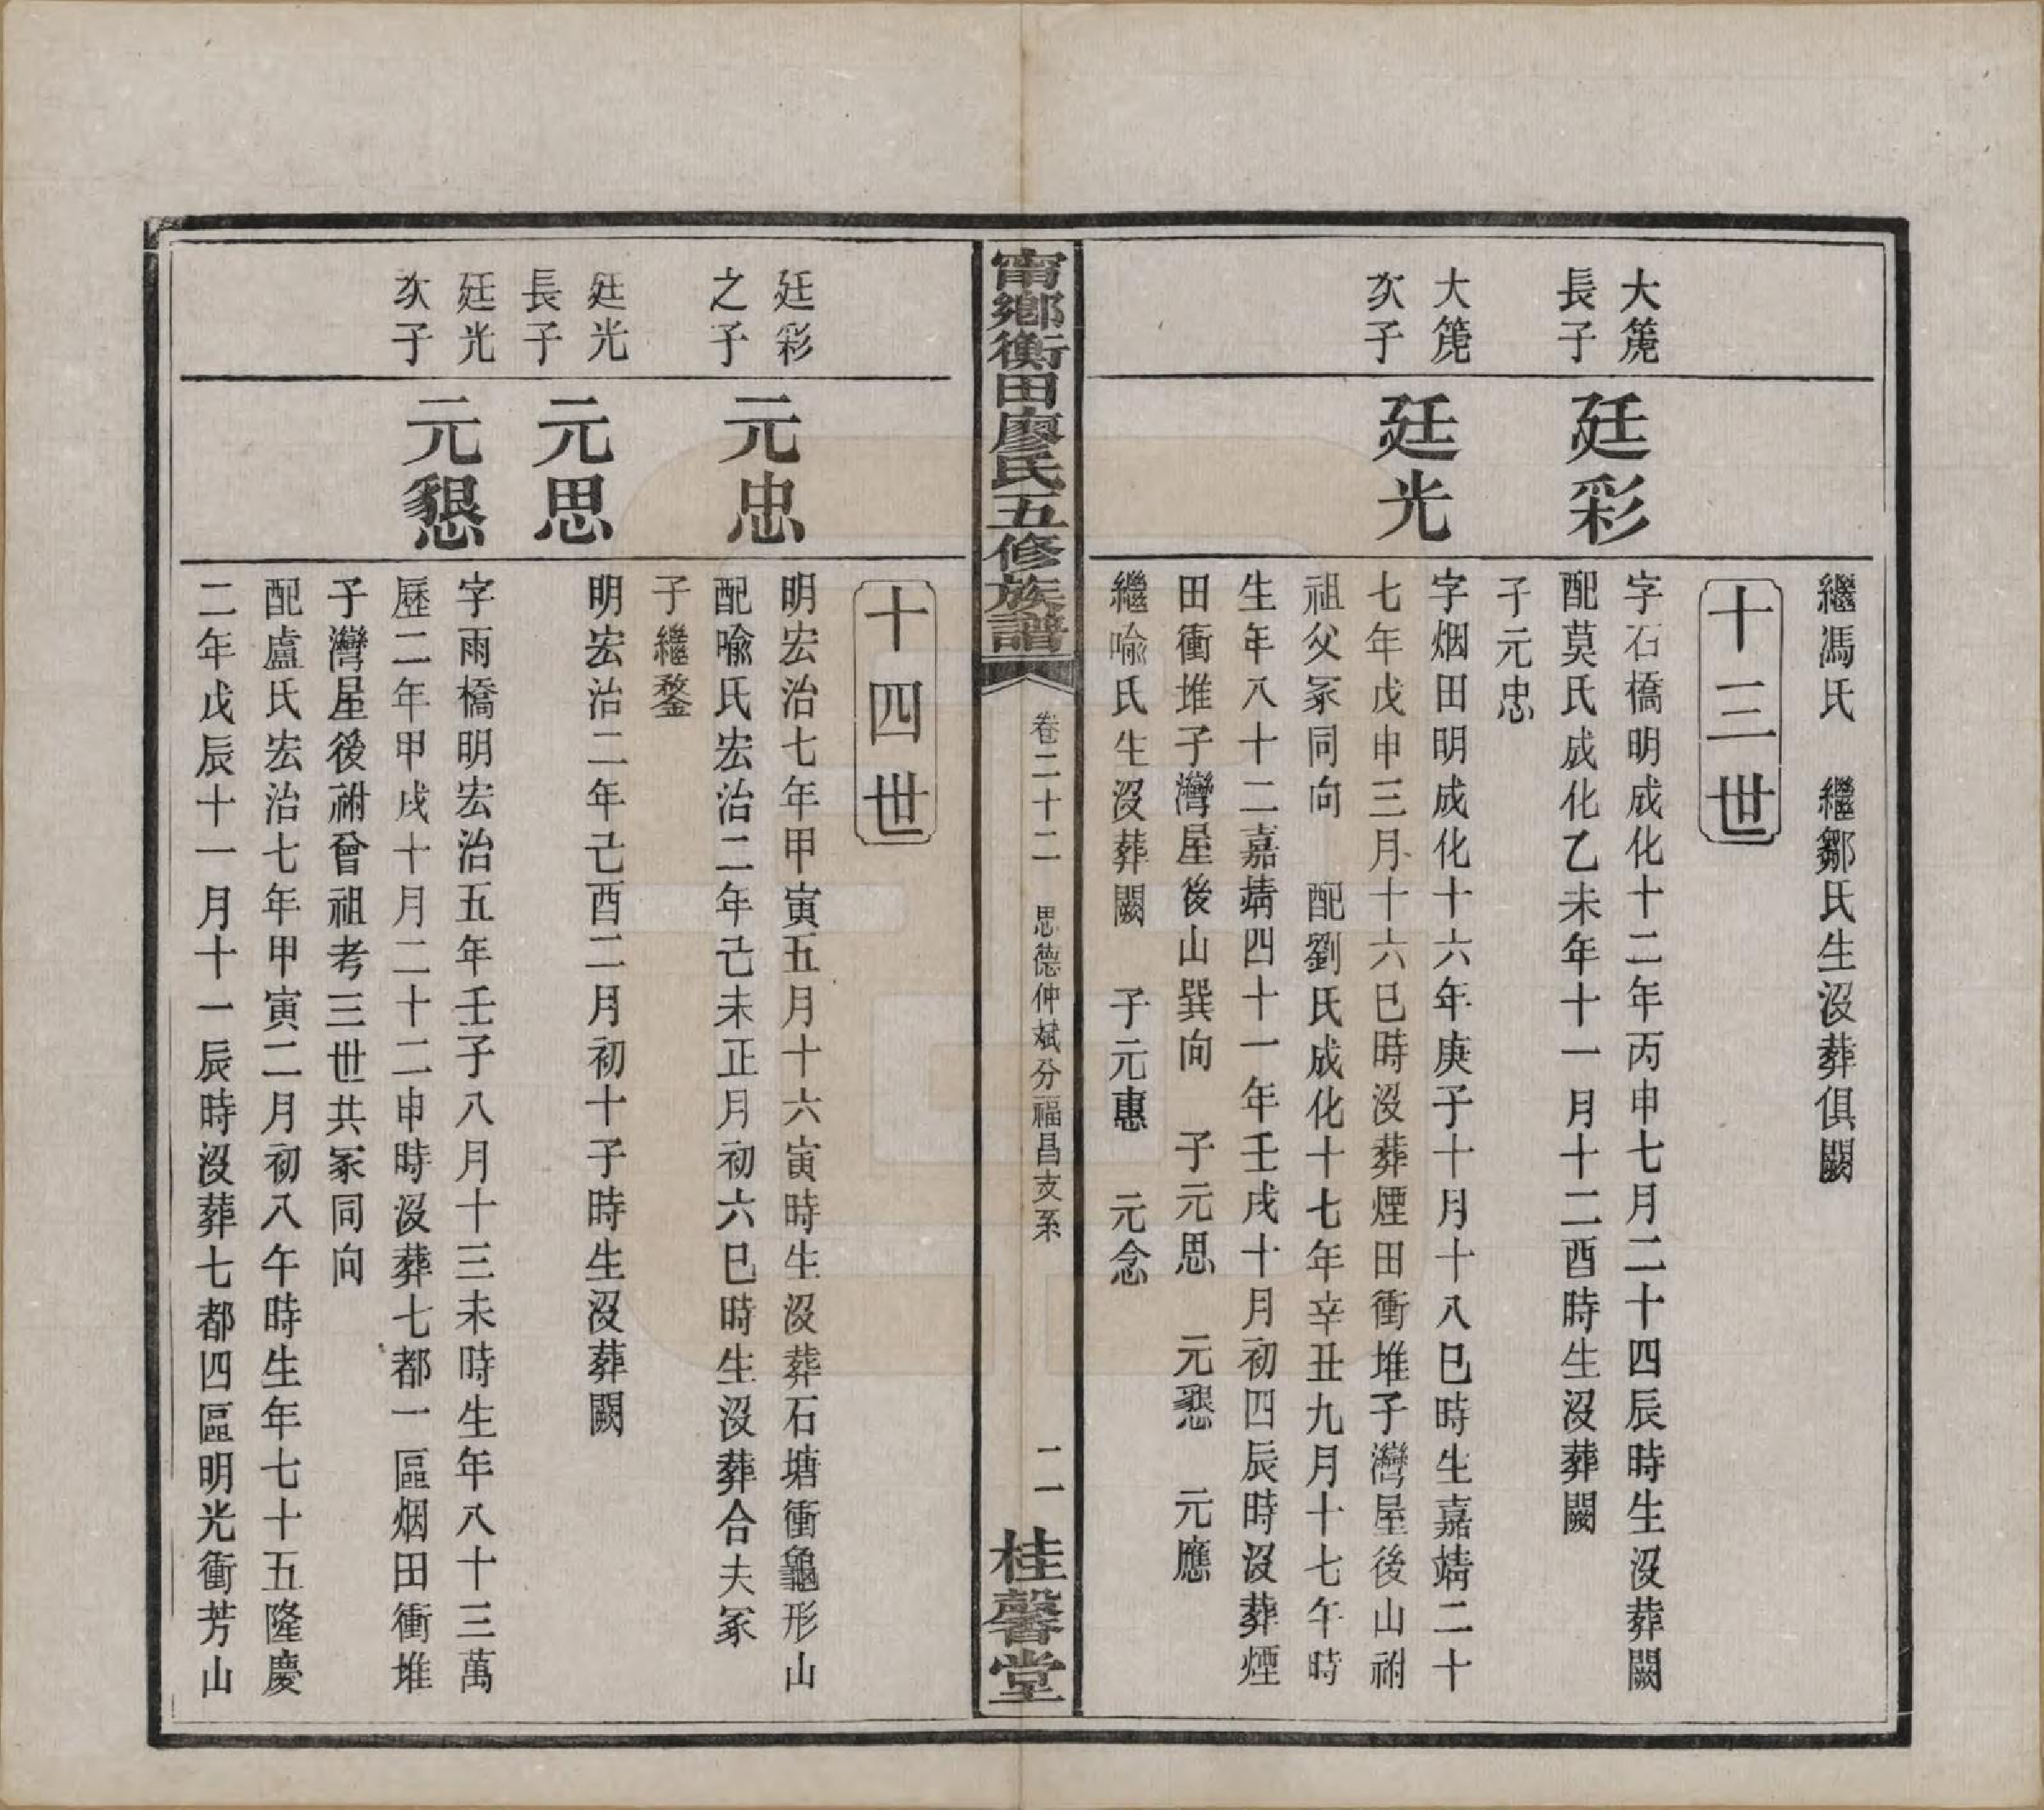 繼馮氏　繼鄒氏生沒葬俱闕
十三世
大箎
長子
廷彩
字石橋明成化十二年丙申七月二十四辰時生沒葬闕
配莫氏成化乙未年十一月十二酉時生沒葬闕
子元忠
大箎
次子
廷光
字烟田明成化十六年庚子十月十八巳時生嘉靖二十
七年戊申三月十六巳時沒葬煙田衝堆子灣屋後山祔
祖父冢同向　配劉氏成化十七年辛丑九月十七午時
生年八十二嘉靖四十一年壬戌十月初四辰時沒葬煙
田衝堆子灣屋後山巽向　子元思　元懇　元應
繼喻氏生沒葬闕　子元惠　元念
甯鄉衡田廖氏五修族譜
卷二十二　思德仲斌分福昌支系
二一
桂馨堂
十四世
廷彩
之子
元忠
明宏治七年甲寅五月十六寅時生沒葬石塘衝龜形山
配喻氏宏治二年己未正月初六巳時生沒葬合夫冢
子繼鍪
廷光
長子
元思
明宏治二年己酉二月初十子時生沒葬闕
廷光
次子
元懇
字雨橋明宏治五年壬子八月十三未時生年八十三萬
歷二年甲戌十月二十二申時沒葬七都一區烟田衝堆
子灣屋後祔曾祖考三世共冢同向
配盧氏宏治七年甲寅二月初八午時生年七十五隆慶
二年戊辰十一月十一辰時沒葬七都四區明光衝芳山